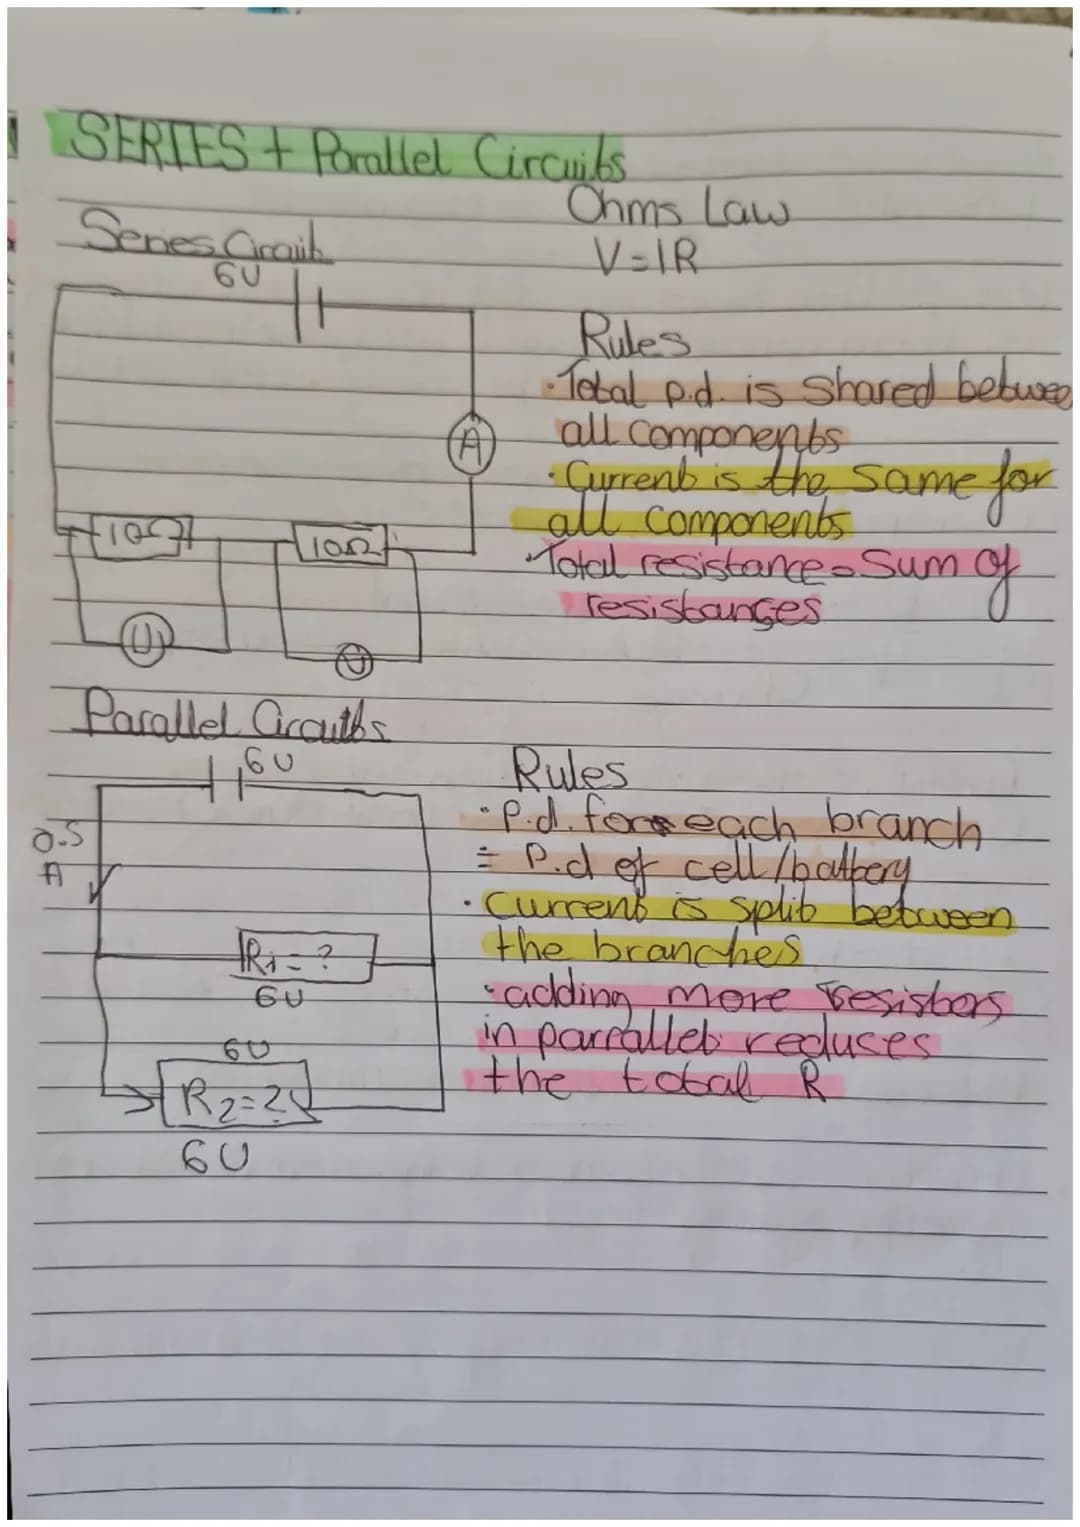 SERIES + Parallel Circuits
Ohms Law
V=IR
Series Circuit
6V
A
10Ω
10Ω
V
V
Rules
• Total p.d. is shared betwee
all components
• Current is the same for
all components
• Total resistance = Sum of
resistances
Parallel Circuits
6V
0.5
A
R1 = ?
6V
6V
R2=?
6V
Rules
• P.d. for each branch
= P.d of cell/battery
• Current is split between
the branches
• adding more resistors
in parrallel reduces
the total R